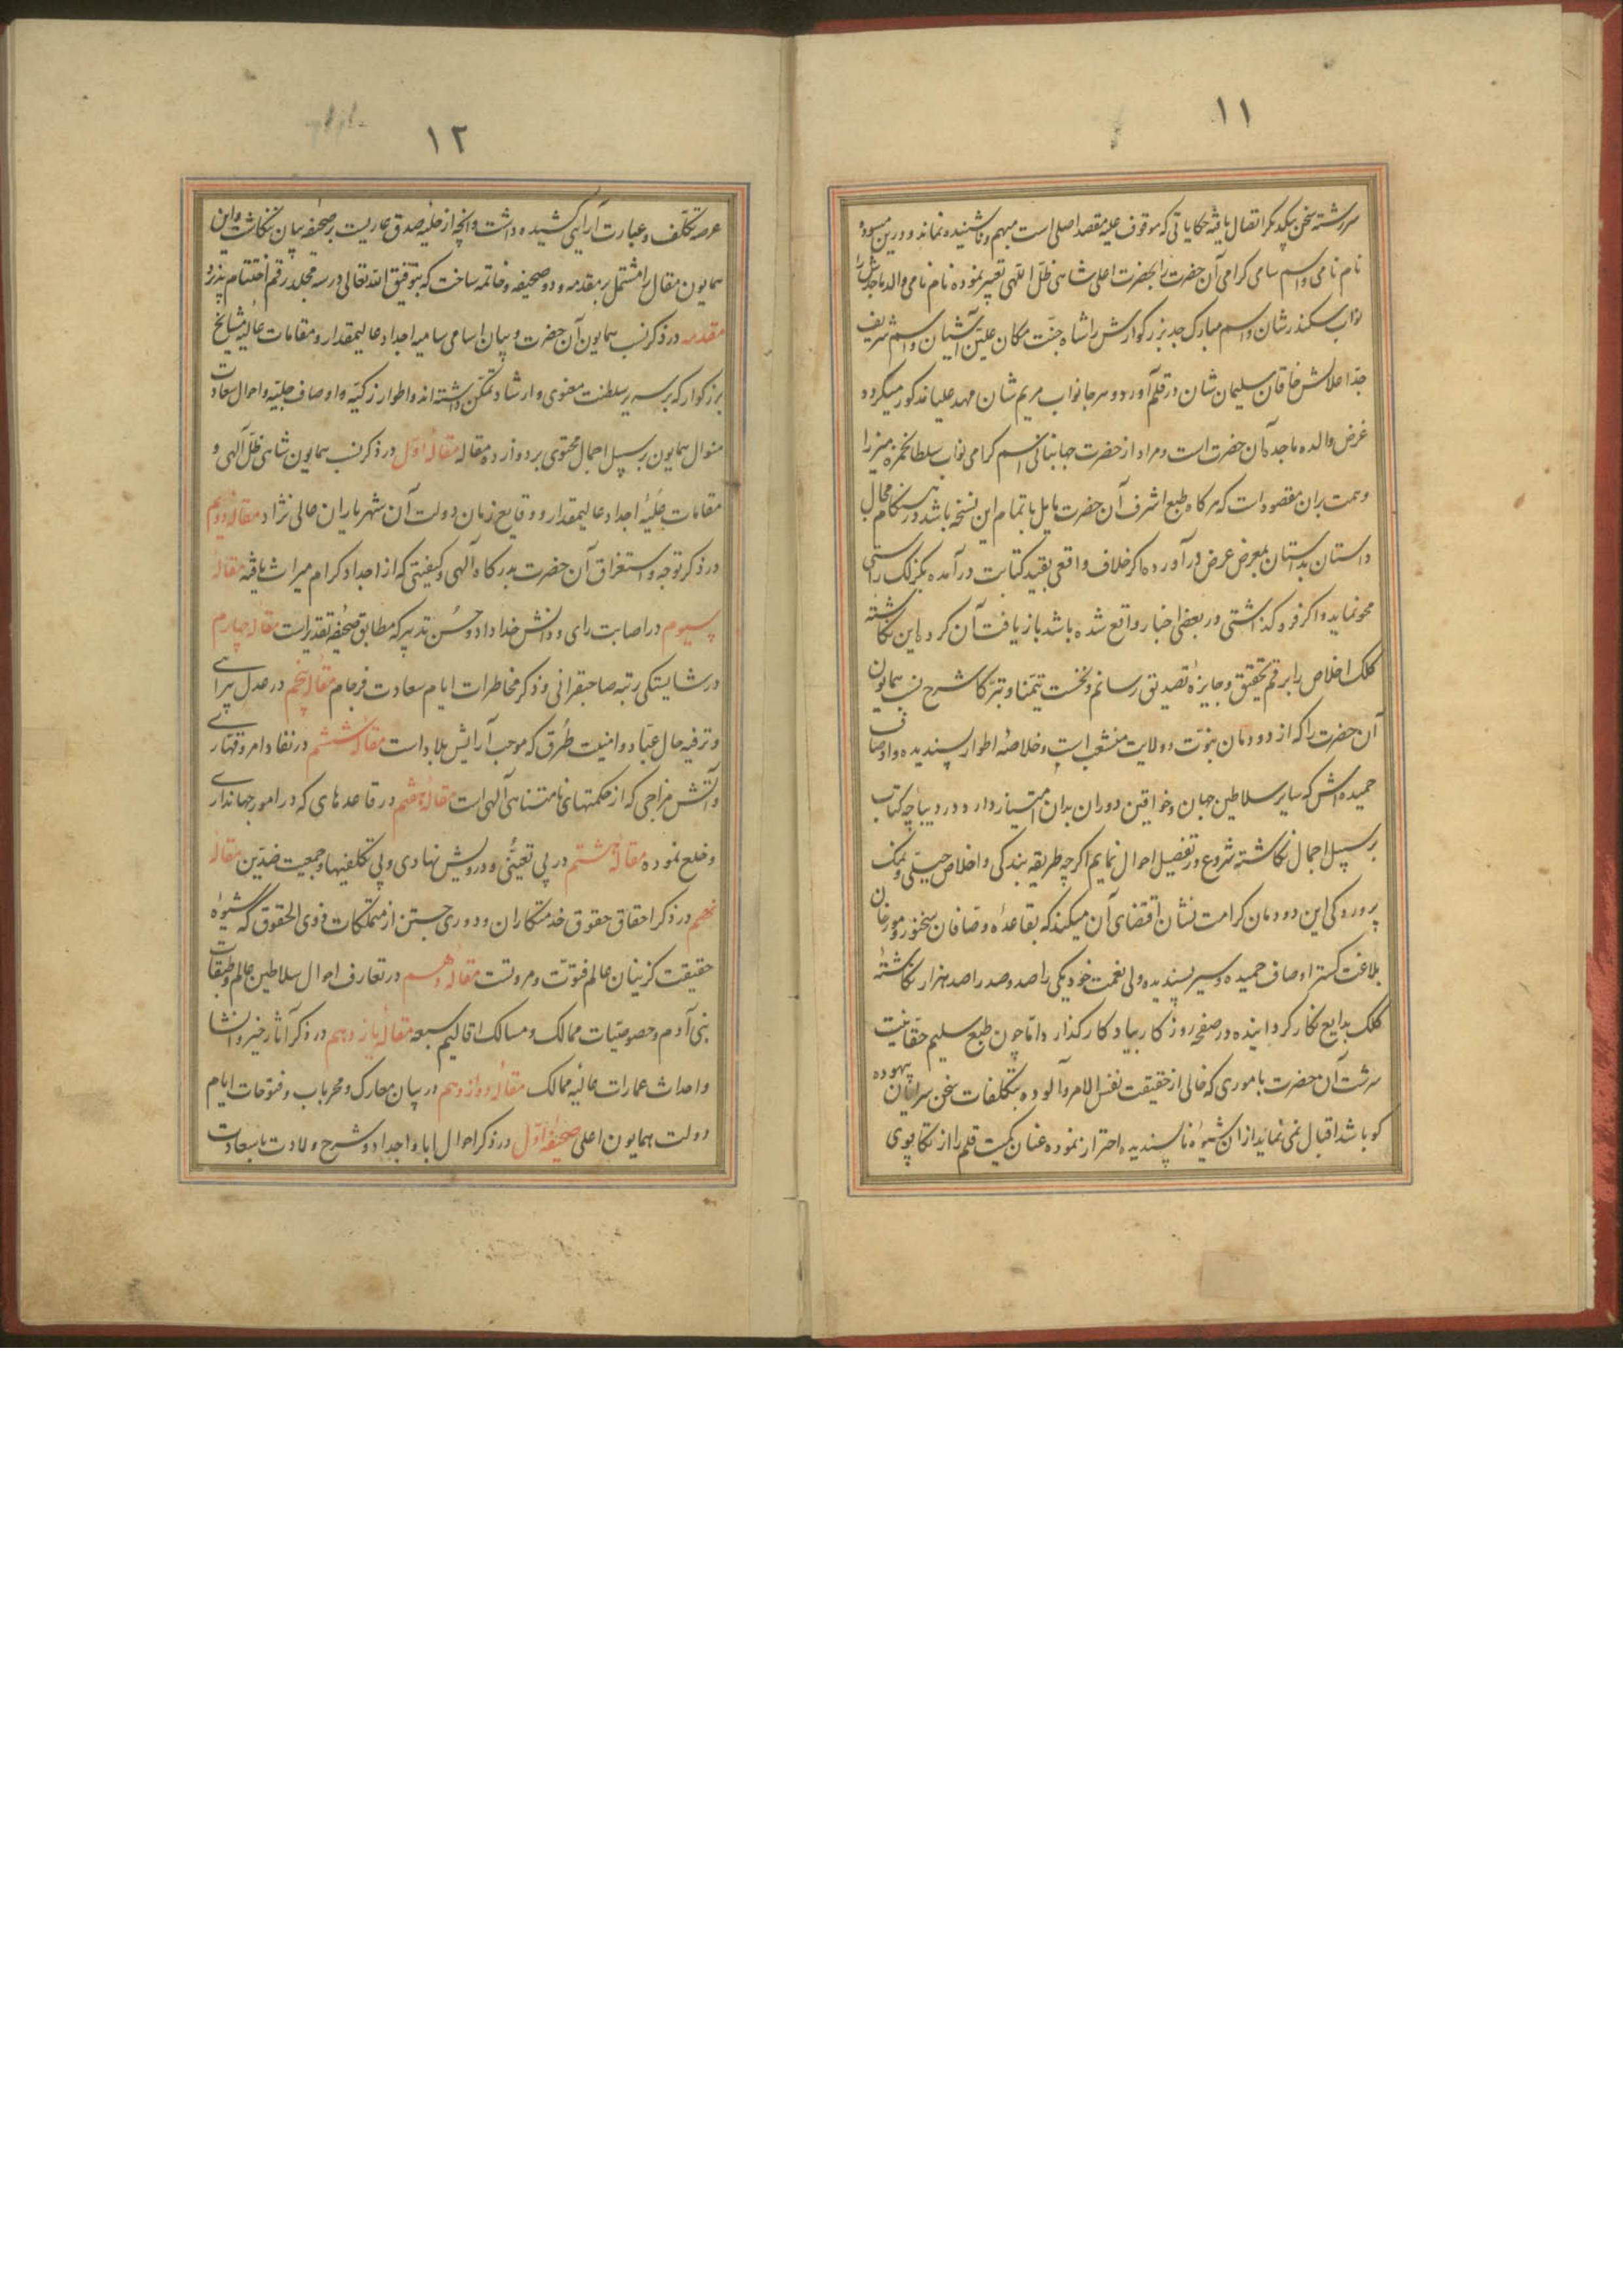 ۱۱
سررشته سخن بیکدیگر اتصال یافته حکایاتی که موقوف علیه مقصد اصلی است مبهم و ناشنیده نماند و درین مسوده
نام نامی و اسم سامی کرامی آن حضرت را بحضرت اعلی شاهی ظل اللهی تعبیر نموده نام نامی والد ماجدش را
نواب سکندر شان و اسم مبارک جد بزرکوارش را شاه جنت مکان علیین آشیان و اسم شریف
جد اعلاش خاقان سلیمان شان در قلم آورد و هر جا نواب مریم شان مهد علیا مذکور میکردد
غرض والده ماجده آن حضرت است و مراد از حضرت جهانبانی اسم کرامی نواب سلطان حمزه میرزا
و همت بران مقصور است که هر کاه طبع اشرف آن حضرت مایل باتمام این نسخه باشد در هنکام مجال
داستان بداستان بمعرض عرض درآورده اکر خلاف واقعی بقید کتابت درآمده بکزلک راستی
محو نماید و اکر فروکذاشتی در بعضی اخبار واقع شده باشد باز یافت آن کرده این نکاشته
کلک اخلاص را برقم تحقیق و جایزه تصدیق رسانم و نخست تیمنا و تبرکا شرح نسب همایون
آن حضرت را که از دودمان نبوت و ولایت منشعب است و خلاصه اطوار پسندیده و اوصاف
حمیده اش که سایر سلاطین جهان و خواقین دوران بدان امتیاز دارد در دیباچه کتاب
بر سبیل اجمال نکاشته شروع در تفصیل احوال نمایم اکرچه طریقه بندکی و اخلاص جبلی و نمک
پروردکی این دودمان کرامت نشان اقتضای آن میکند که بقاعده وصافان سخنور و مورخان
بلاغت کستر اوصاف حمیده و سیر پسندیده ولی نعمت خود یکی را صد و صد را صد هزار نکاشته
کلک بدایع نکار کردانیده در صفحه روزکار بیادکار کذارد اما چون طبع سلیم حقانیت
سرشت آن حضرت باموری که خالی از حقیقت نفس الامر و آلوده بتکلفات سخن سرایان بیهوده
کو باشد اقبال نمی نماید از آن شیوه ناپسندیده احتراز نموده عنان کمیت قلم را از تکاپوی
۱۲
عرصه تکلف و عبارت آرایی کشیده داشت و آنچه از حلیه صدق عاریست بر صحیفه بیان ننکاشت و این
همایون مقال را مشتمل بر مقدمه و دو صحیفه و خاتمه ساخت که بتوفیق الله تعالی در سه مجلد رقم اختتام پذیرد
مقدمه در ذکر نسب همایون آن حضرت و بیان اسامی سامیه اجداد عالیمقدار و مقامات عالیه مشایخ
بزرکوار که بر سریر سلطنت معنوی و ارشاد تمکن داشته اند و اطوار زکیه و اوصاف جلیه و احوال سعادت
منوال همایون بر سبیل اجمال محتوی بر دوازده مقاله مقاله اول در ذکر نسب همایون شاهی ظل آلهی و
مقامات علیه اجداد عالیمقدار و وقایع زمان دولت آن شهریاران عالی نژاد مقاله دویم
در ذکر توجه و استغراق آن حضرت بدرکاه آلهی و کیفیتی که از اجداد کرام میراث یافته مقاله
سیوم در اصابت رای و دانش خداداد و حسن تدبیر که مطابق صحیفه تقدیر است مقاله چهارم
در شایستکی رتبه صاحبقرانی و ذکر مخاطرات ایام سعادت فرجام مقاله پنجم در عدل پیرایی
و ترفیه حال عباد و امنیت طرق که موجب آرایش بلاد است مقاله ششم در نفاد امر و قهاری
و آتش مزاجی که از حکمتهای نامتناهی آلهی است مقاله هفتم در قاعدهای که در امور جهانداری
وضع نموده مقاله هشتم در بی تعینی و درویش نهادی و بی تکلفیها و جمعیت ضدین مقاله
نهم در ذکر احقاق حقوق خدمتکاران و دوری جستن از متملکات ذوی الحقوق که شیوه
حقیقت کزینان عالم فتوت و مروتست مقاله دهم در تعارف احوال سلاطین عالم و طبقات
بنی آدم و خصوصیات ممالک و مسالک اقالیم سبعه مقاله یازدهم در ذکر آثار خیر و انشا
و احداث عمارات عالیه ممالک مقاله دوازدهم در بیان معارک و محربات و فتوحات ایام
دولت همایون اعلی صحیفه اول در ذکر احوال اباء و اجداد و شرح ولادت باسعادت